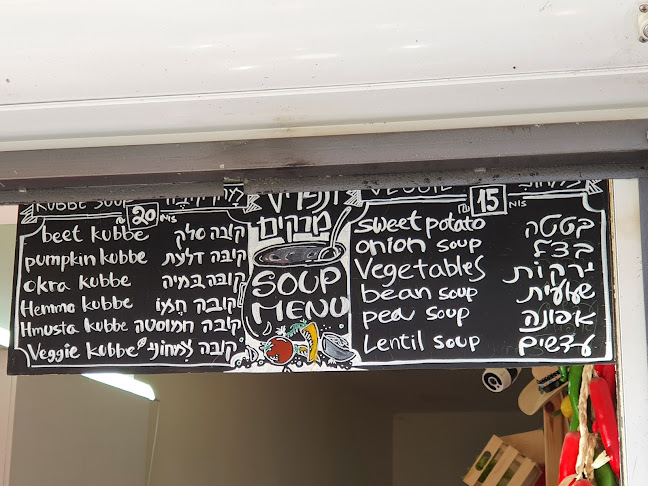 KUBBE SOUP מרק קובה
20 NIS ₪
beet kubbe קובה סלק
pumpkin kubbe קובה דלעת
okra kubbe קובה במיה
Hemmo kubbe קובה חמו
Hmusta kubbe קובה חמוסטה
Veggie kubbe קובה צמחוני
תפריט
מרקים
SOUP
MENU
VEGGIE
15 NIS ₪
sweet potato בטטה
onion soup בצל
Vegetables ירקות
bean soup שעועית
pea soup אפונה
Lentil soup עדשים